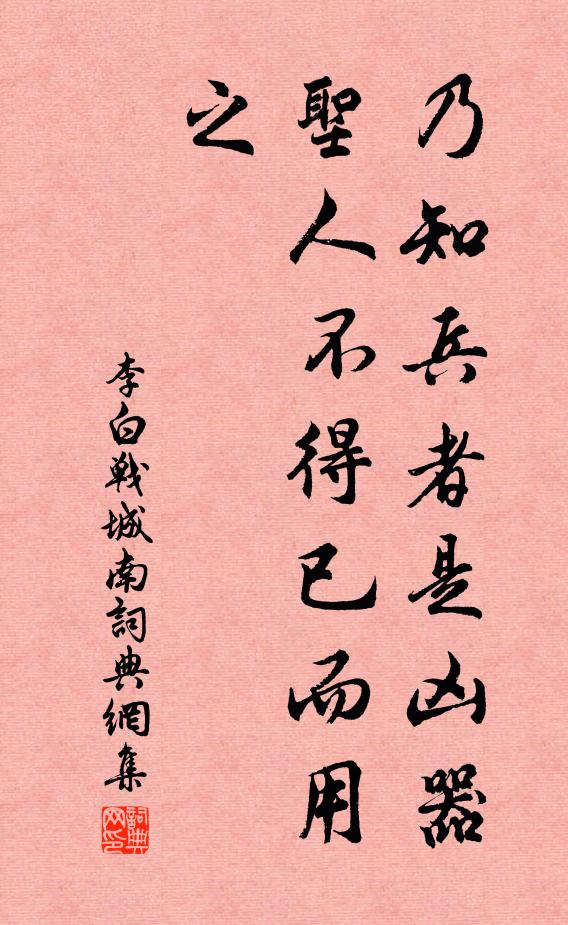 乃知兵者是凶器
聖人不得已而用
之
李白戰城南詞典網集
詞典
网印